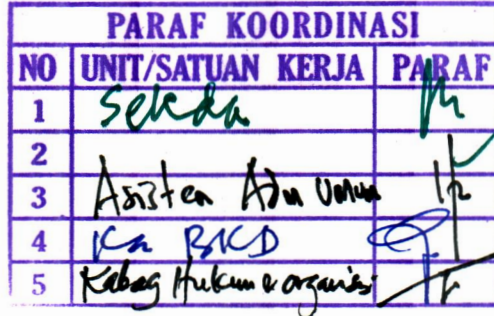 PARAF KOORDINASI
NO UNIT/SATUAN KERJA PARAF
1 Sekda
2
3 Asisten Adm Umum
4 Ka BKD
5 Kabag Hukum & organisasi